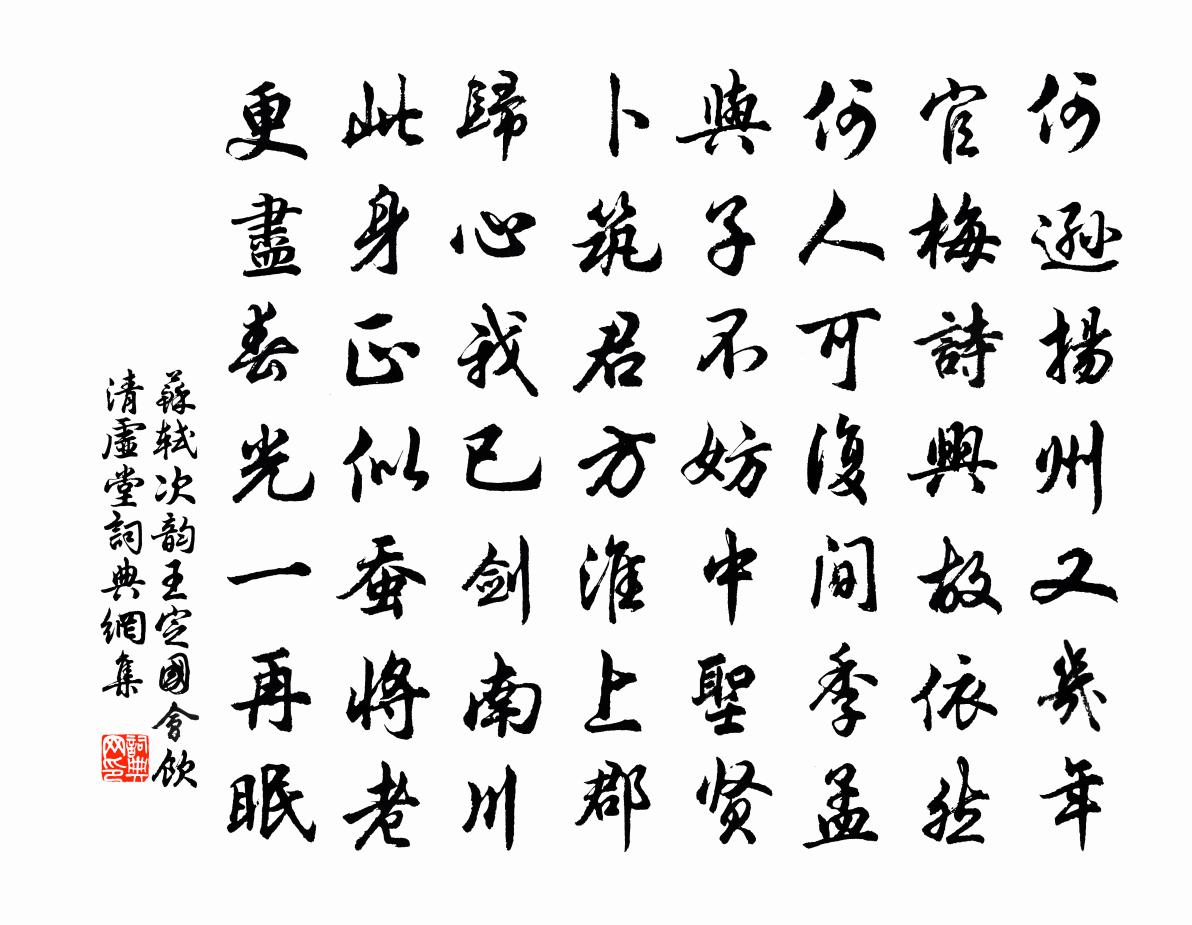 何遜揚州又幾年
官梅詩興故依然
何人可復間季孟
與子不妨中聖贤
卜筑君方淮上郡
歸心我已劍南川
此身正似蚕將老
更盡春光一再眠
蘇軾次韵王定國會飲
清虛堂詞典網集
詞典
网印